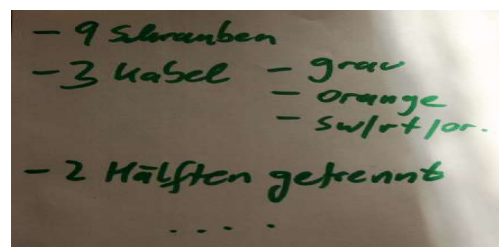 - 9 Schrauben
- 3 Kabel - grau
- orange
- sw/rt/or.
- 2 Hälften getrennt
. . . .